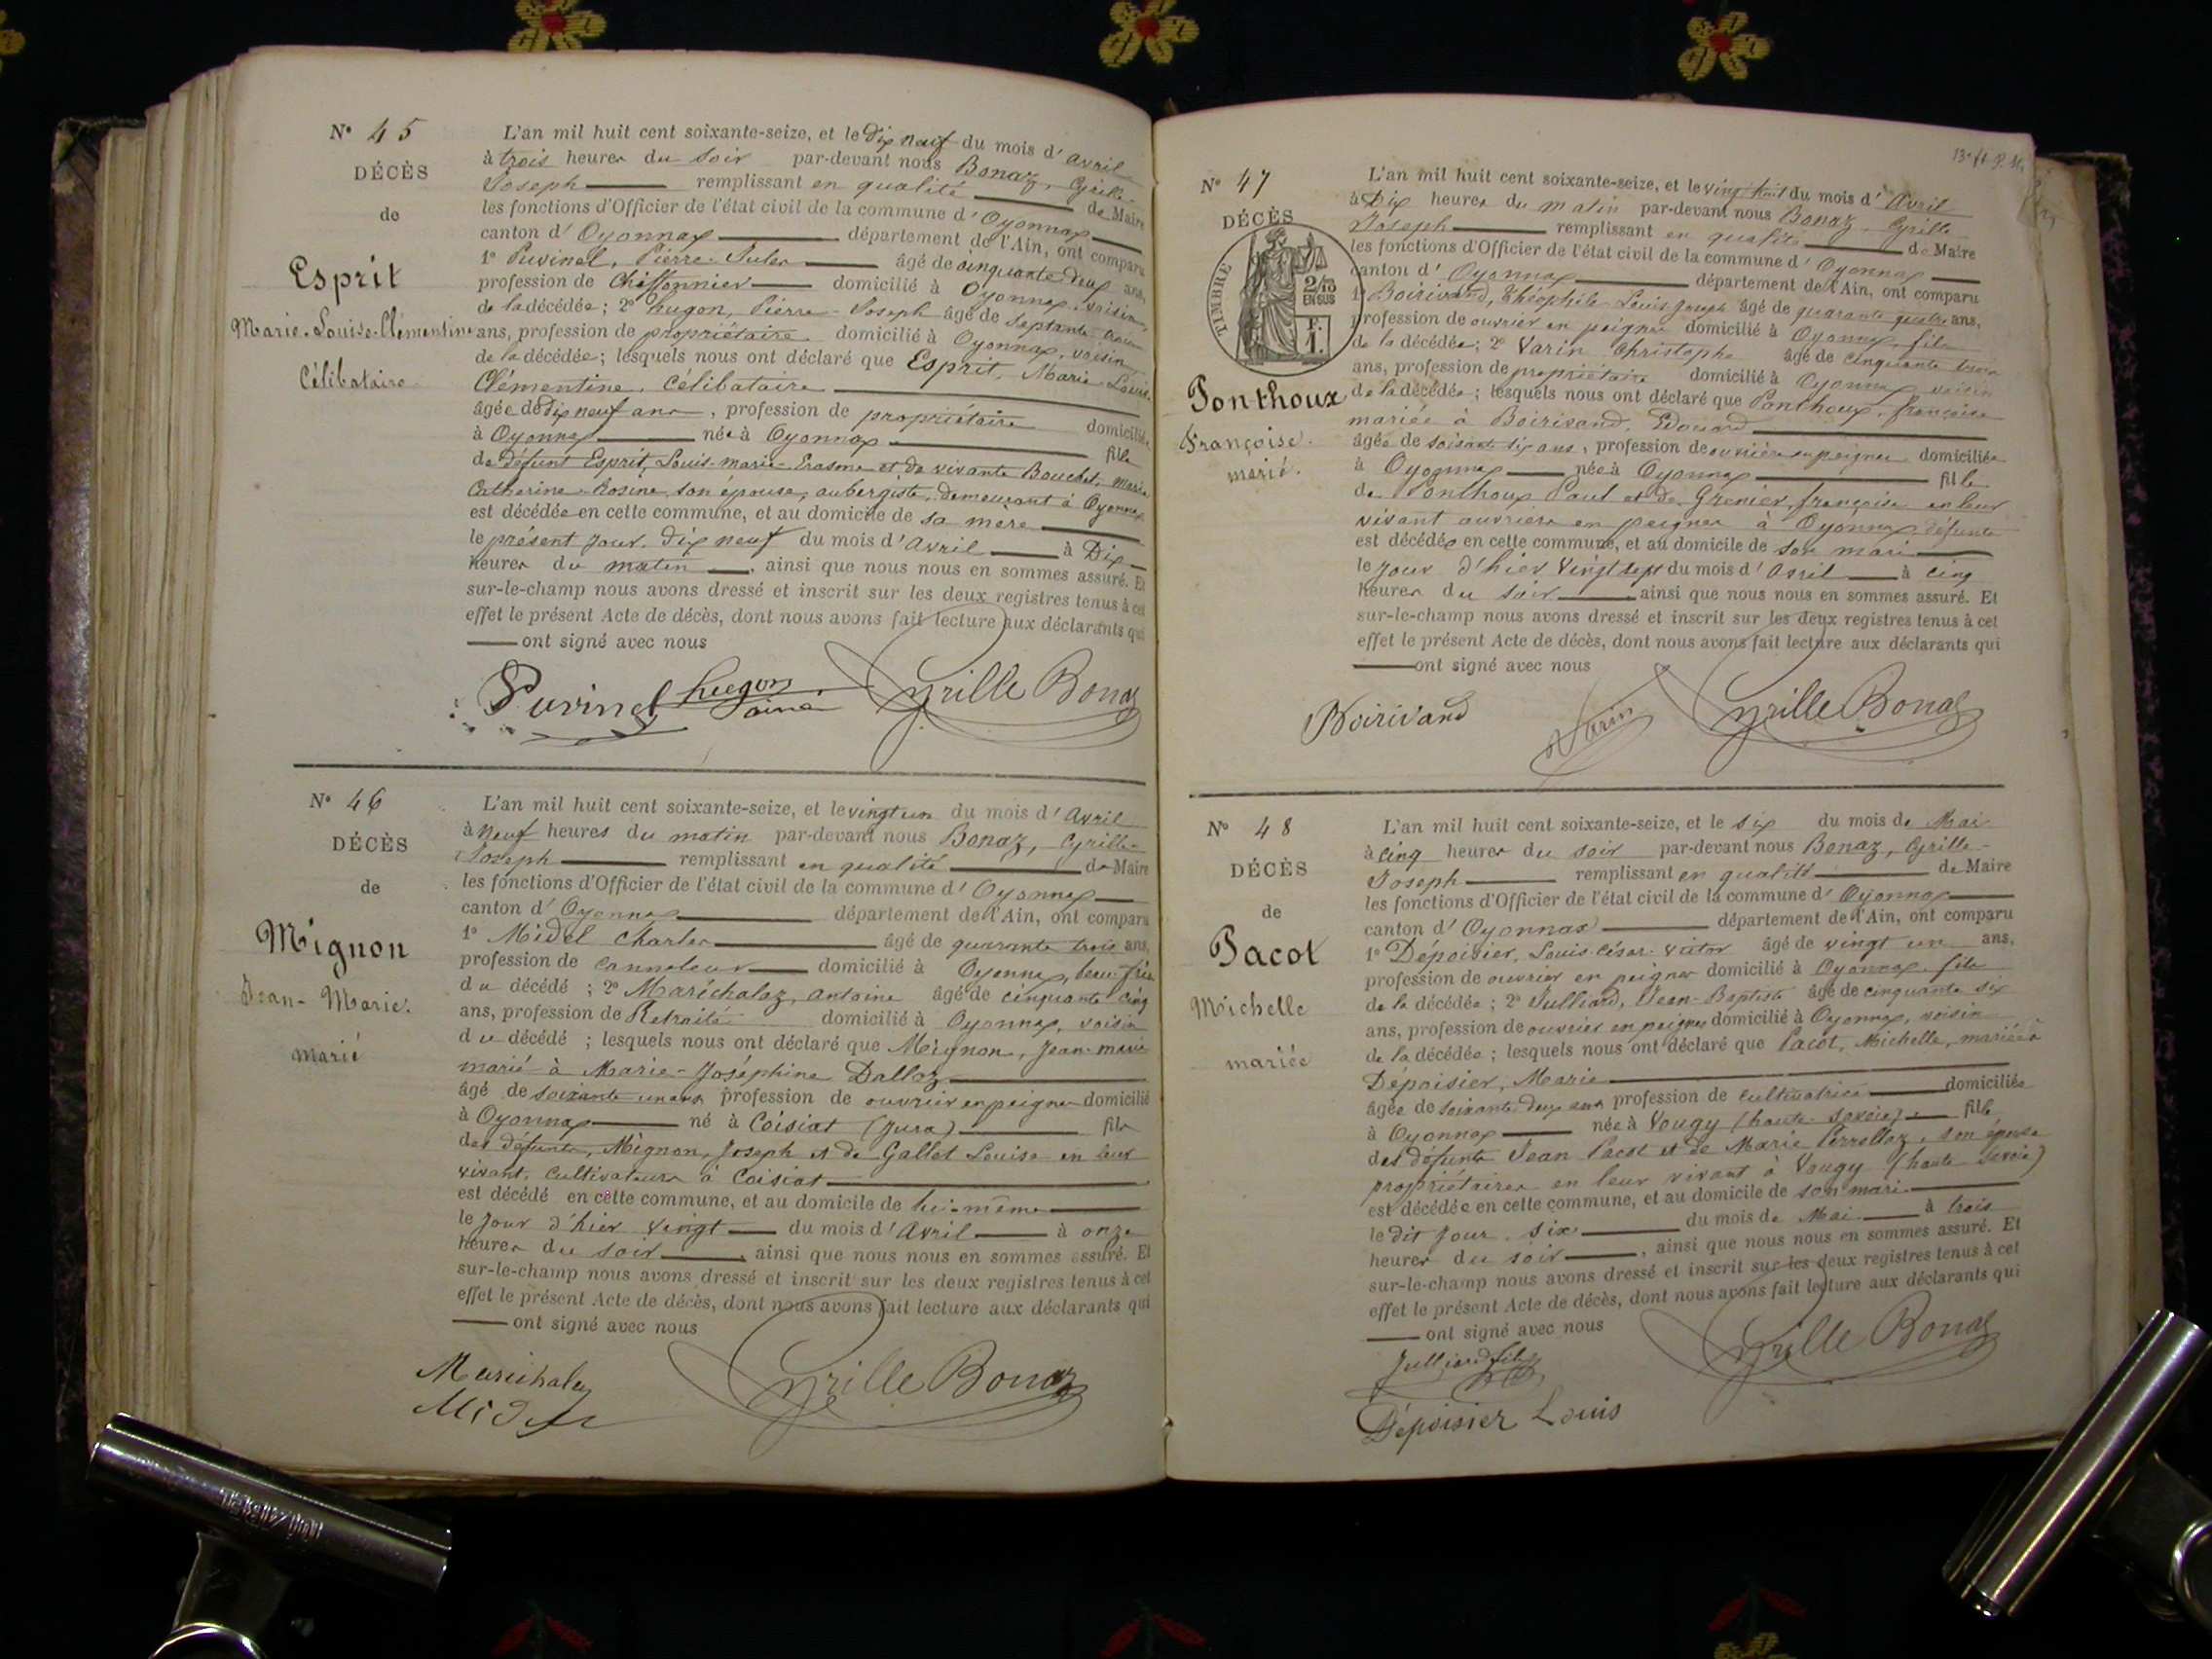 N° 45
DÉCÈS
de
Esprit
Marie-Louise-Clémentine
Célibataire
L'an mil huit cent soixante-seize, et le dix neuf du mois d'avril
à trois heures du soir par-devant nous Bonaz, Cyrille
Joseph remplissant en qualité de Maire
les fonctions d'Officier de l'état civil de la commune d'Oyonnax
canton d'Oyonnax département de l'Ain, ont comparu
1° Puvinel, Pierre-Jules âgé de cinquante deux ans,
profession de Chiffonnier domicilié à Oyonnax, voisin
de la décédée; 2° hugon, Pierre-Joseph âgé de septante
ans, profession de propriétaire domicilié à Oyonnax, voisin
de la décédée; lesquels nous ont déclaré que Esprit, Marie Louise
Clémentine, Célibataire
âgée de dix neuf ans, profession de propriétaire domiciliée
à Oyonnax née à Oyonnax fille
de défunt Esprit, Louis-marie-Erasme et de vivante Bouchet, Marie
Catherine-Rosine, son épouse, aubergiste, demeurant à Oyonnax
est décédée en cette commune, et au domicile de sa mère
le présent jour, dix neuf du mois d'avril à Dix
heures du matin, ainsi que nous nous en sommes assuré. Et
sur-le-champ nous avons dressé et inscrit sur les deux registres tenus à cet
effet le présent Acte de décès, dont nous avons fait lecture aux déclarants qui
ont signé avec nous
Puvinel hugon Cyrille Bonaz
N° 46
DÉCÈS
de
Mignon
Jean-Marie
marié
L'an mil huit cent soixante-seize, et le vingt un du mois d'Avril
à neuf heures du matin par-devant nous Bonaz, Cyrille
Joseph remplissant en qualité de Maire
les fonctions d'Officier de l'état civil de la commune d'Oyonnax
canton d'Oyonnax département de l'Ain, ont comparu
1° Midel Charles âgé de quarante trois ans,
profession de canneleur domicilié à Oyonnax, beau-frère
du décédé; 2° Maréchalaz, antoine âgé de cinquante cinq
ans, profession de Retraité domicilié à Oyonnax, voisin
du décédé; lesquels nous ont déclaré que Mignon, Jean-marie
marié à Marie-Joséphine Dalloz
âgé de soixante un ans profession de ouvrier en peignes domicilié
à Oyonnax né à Coisiat (Jura) fils
des défunts, Mignon, Joseph et de Gallet Louise en leur
vivant, Cultivateurs à Coisiat
est décédé en cette commune, et au domicile de lui-même
le jour d'hier vingt du mois d'Avril à onze
heures du soir, ainsi que nous nous en sommes assuré. Et
sur-le-champ nous avons dressé et inscrit sur les deux registres tenus à cet
effet le présent Acte de décès, dont nous avons fait lecture aux déclarants qui
ont signé avec nous
Maréchalaz Cyrille Bonaz
Midel
N° 47
DÉCÈS
TIMBRE
2/10
EN SUS
F.
1.
Ponthoux
Françoise
marié.
L'an mil huit cent soixante-seize, et le vingt huit du mois d'Avril
à Dix heures du matin par-devant nous Bonaz, Cyrille
Joseph remplissant en qualité de Maire
les fonctions d'Officier de l'état civil de la commune d'Oyonnax
canton d'Oyonnax département de l'Ain, ont comparu
1° Boirivand, Théophile-Louis-Joseph âgé de quarante quatre ans,
profession de ouvrier en peignes domicilié à Oyonnax, fils
de la décédée; 2° Varin Christophe âgé de cinquante
ans, profession de propriétaire domicilié à Oyonnax voisin
de la décédée; lesquels nous ont déclaré que Ponthoux, françoise
mariée à Boirivand, Edouard
âgée de soixante six ans, profession de ouvrière en peignes domiciliée
à Oyonnax née à Oyonnax fille
de Ponthoux Paul et de Grenier, françoise en leur
vivant ouvriers en peignes à Oyonnax défunts
est décédée en cette commune, et au domicile de son mari
le jour d'hier Vingt sept du mois d'Avril à cinq
heures du soir, ainsi que nous nous en sommes assuré. Et
sur-le-champ nous avons dressé et inscrit sur les deux registres tenus à cet
effet le présent Acte de décès, dont nous avons fait lecture aux déclarants qui
ont signé avec nous
Boirivand Varin Cyrille Bonaz
N° 48
DÉCÈS
de
Pacot
Michelle
mariée
L'an mil huit cent soixante-seize, et le six du mois de Mai
à cinq heures du soir par-devant nous Bonaz, Cyrille
Joseph remplissant en qualité de Maire
les fonctions d'Officier de l'état civil de la commune d'Oyonnax
canton d'Oyonnax département de l'Ain, ont comparu
1° Dépoisier, Louis-César-victor âgé de vingt un ans,
profession de ouvrier en peignes domicilié à Oyonnax fils
de la décédée; 2° Julliard, Jean-Baptiste âgé de cinquante six
ans, profession de ouvrier en peignes domicilié à Oyonnax, voisin
de la décédée; lesquels nous ont déclaré que Pacot, Michelle, mariée à
Dépoisier, Marie
âgée de soixante deux ans profession de cultivatrice domiciliée
à Oyonnax née à Vougy (haute-savoie) fille
des défunts Jean Pacot et de Marie Perrollaz, son épouse
propriétaires en leur vivant à Vougy (haute Savoie)
est décédée en cette commune, et au domicile de son mari
le dit jour six du mois de Mai à trois
heures du soir, ainsi que nous nous en sommes assuré. Et
sur-le-champ nous avons dressé et inscrit sur les deux registres tenus à cet
effet le présent Acte de décès, dont nous avons fait lecture aux déclarants qui
ont signé avec nous
Julliard fils Cyrille Bonaz
Dépoisier Louis